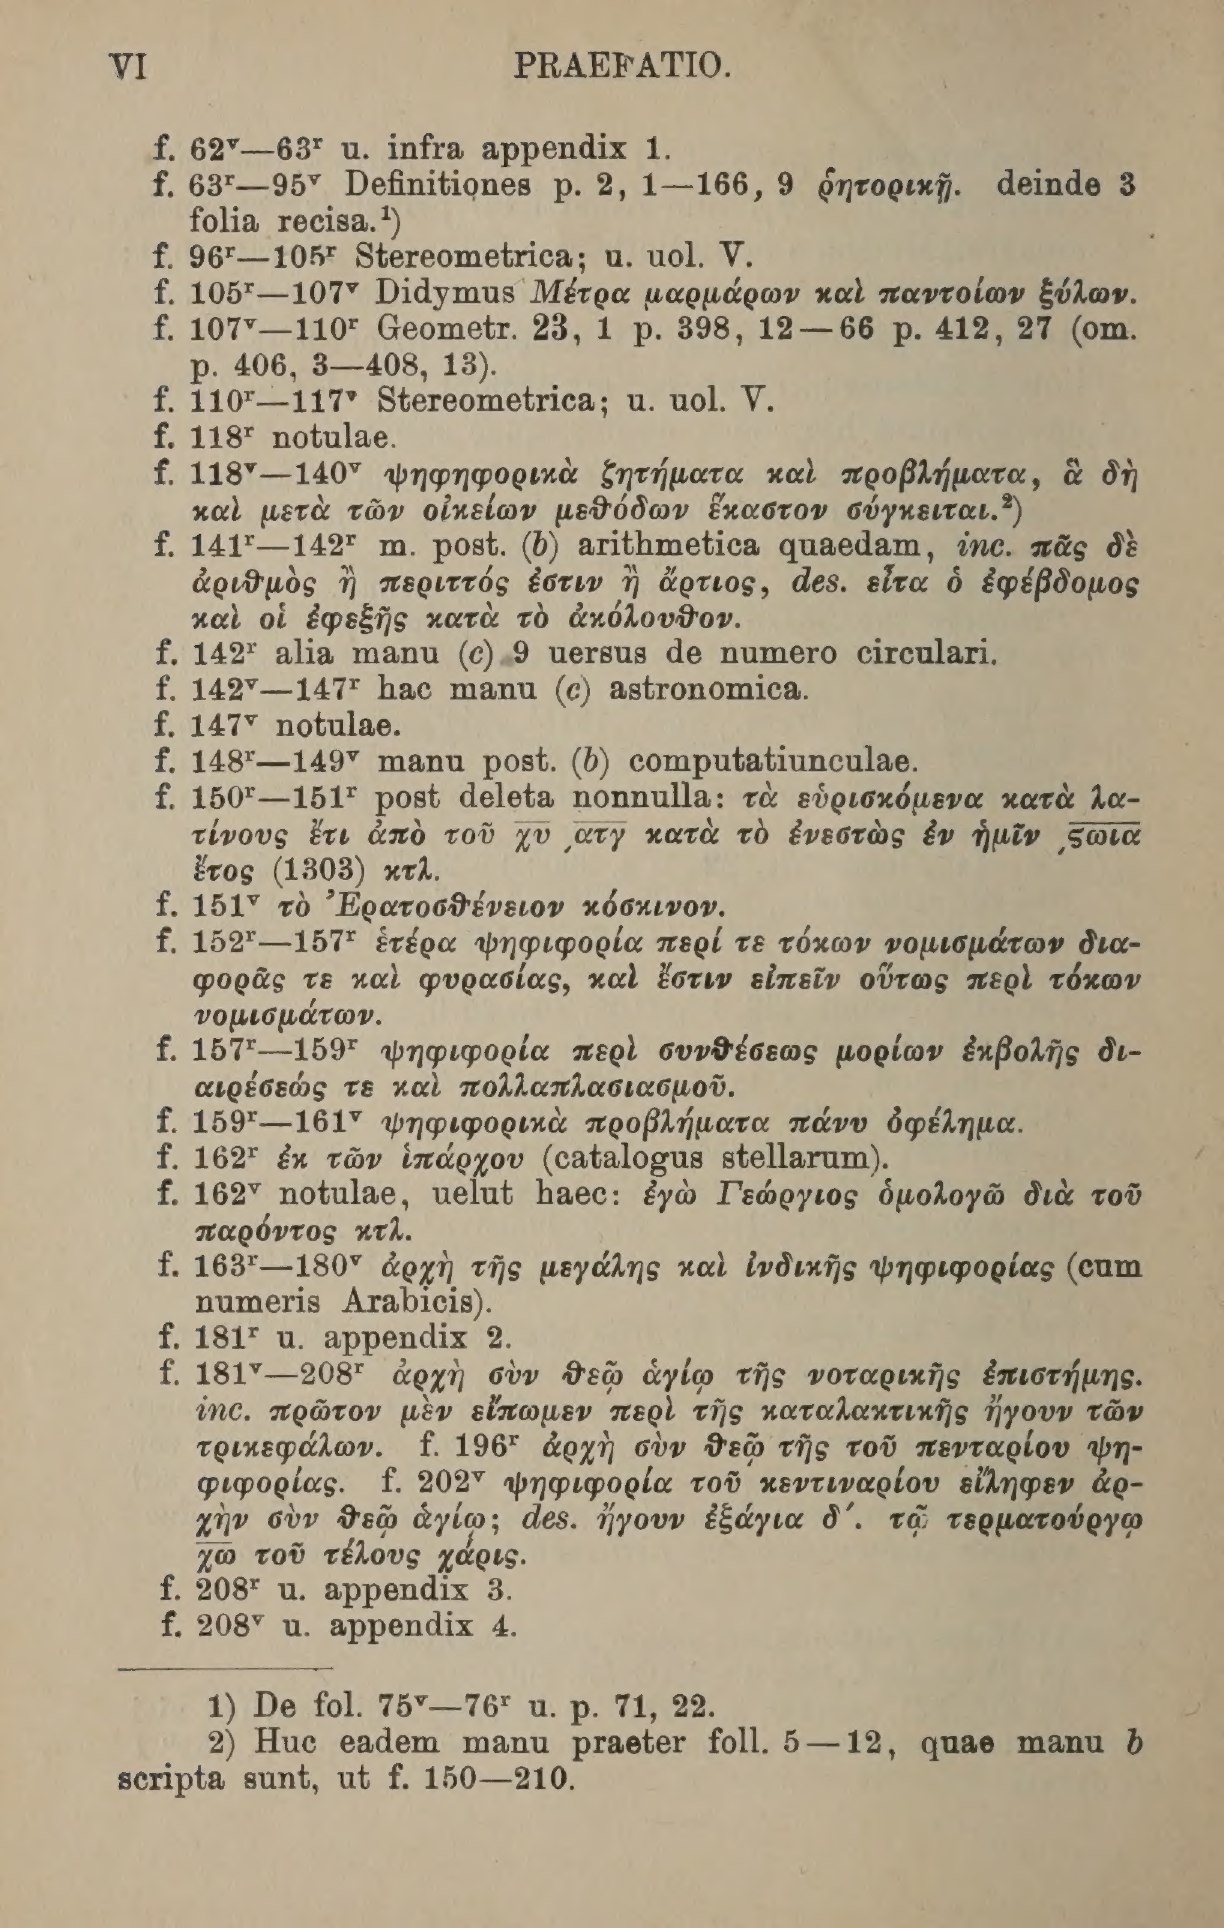 VI PRAEFATIO.
f. 62ᵛ—63ʳ u. infra appendix 1.
f. 63ʳ—95ᵛ Definitiones p. 2, 1—166, 9 ῥητορικῇ. deinde 3
folia recisa.¹)
f. 96ʳ—105ʳ Stereometrica; u. uol. V.
f. 105ʳ—107ᵛ Didymus Μέτρα μαρμάρων καὶ παντοίων ξύλων.
f. 107ᵛ—110ʳ Geometr. 23, 1 p. 398, 12—66 p. 412, 27 (om.
p. 406, 3—408, 13).
f. 110ʳ—117ᵛ Stereometrica; u. uol. V.
f. 118ʳ notulae.
f. 118ᵛ—140ᵛ ψηφηφορικὰ ζητήματα καὶ προβλήματα, ἃ δὴ
καὶ μετὰ τῶν οἰκείων μεθόδων ἕκαστον σύγκειται.²)
f. 141ʳ—142ʳ m. post. (b) arithmetica quaedam, inc. πᾶς δὲ
ἀριθμὸς ἢ περιττός ἐστιν ἢ ἄρτιος, des. εἶτα ὁ ἐφέβδομος
καὶ οἱ ἐφεξῆς κατὰ τὸ ἀκόλουθον.
f. 142ʳ alia manu (c) 9 uersus de numero circulari.
f. 142ᵛ—147ʳ hac manu (c) astronomica.
f. 147ᵛ notulae.
f. 148ʳ—149ᵛ manu post. (b) computatiunculae.
f. 150ʳ—151ʳ post deleta nonnulla: τὰ εὑρισκόμενα κατὰ λα-
τίνους ἔτι ἀπὸ τοῦ χ̅υ̅ ͵α̅τ̅γ̅ κατὰ τὸ ἐνεστὼς ἐν ἡμῖν ͵ς̅ω̅ι̅α̅
ἔτος (1303) κτλ.
f. 151ᵛ τὸ Ἐρατοσθένειον κόσκινον.
f. 152ʳ—157ʳ ἑτέρα ψηφιφορία περί τε τόκων νομισμάτων δια-
φορᾶς τε καὶ φυρασίας, καὶ ἔστιν εἰπεῖν οὕτως περὶ τόκων
νομισμάτων.
f. 157ʳ—159ʳ ψηφιφορία περὶ συνθέσεως μορίων ἐκβολῆς δι-
αιρέσεώς τε καὶ πολλαπλασιασμοῦ.
f. 159ʳ—161ᵛ ψηφιφορικὰ προβλήματα πάνυ ὀφέλημα.
f. 162ʳ ἐκ τῶν ἱπάρχου (catalogus stellarum).
f. 162ᵛ notulae, uelut haec: ἐγὼ Γεώργιος ὁμολογῶ διὰ τοῦ
παρόντος κτλ.
f. 163ʳ—180ᵛ ἀρχὴ τῆς μεγάλης καὶ ἰνδικῆς ψηφιφορίας (cum
numeris Arabicis).
f. 181ʳ u. appendix 2.
f. 181ᵛ—208ʳ ἀρχὴ σὺν θεῷ ἁγίῳ τῆς νοταρικῆς ἐπιστήμης.
inc. πρῶτον μὲν εἴπωμεν περὶ τῆς καταλακτικῆς ἤγουν τῶν
τρικεφάλων. f. 196ʳ ἀρχὴ σὺν θεῷ τῆς τοῦ πενταρίου ψη-
φιφορίας. f. 202ᵛ ψηφιφορία τοῦ κεντιναρίου εἴληφεν ἀρ-
χὴν σὺν θεῷ ἁγίῳ; des. ἤγουν ἐξάγια δ´. τῷ τερματούργῳ
χ̅ω̅ τοῦ τέλους χάρις.
f. 208ʳ u. appendix 3.
f. 208ᵛ u. appendix 4.
1) De fol. 75ᵛ—76ʳ u. p. 71, 22.
2) Huc eadem manu praeter foll. 5—12, quae manu b
scripta sunt, ut f. 150—210.